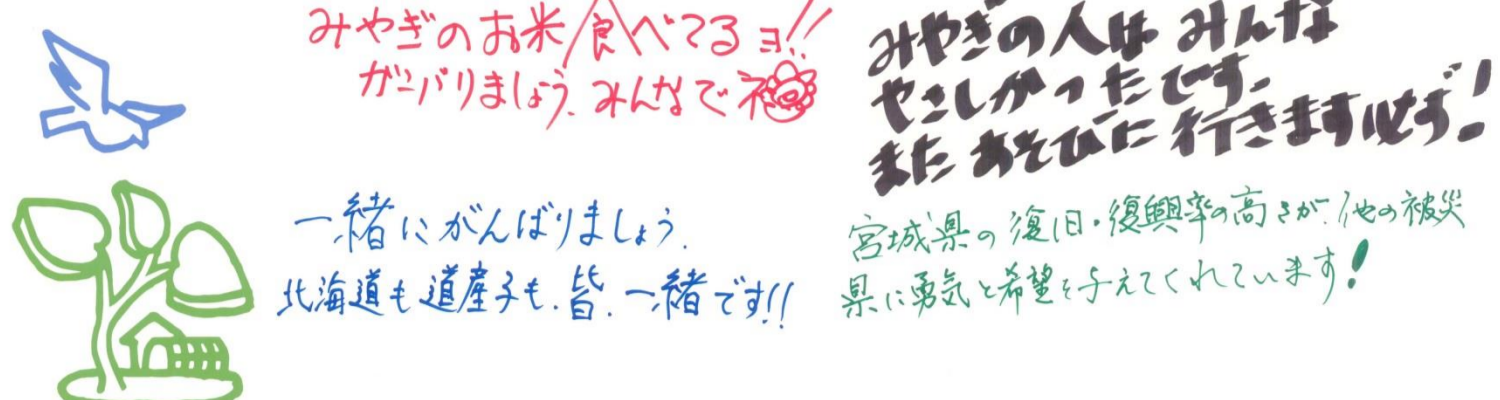 みやぎのお米食べてるヨ!!
ガンバリましょう。みんなでネ
みやぎの人は みんな
やさしかったです。
また あそびに 行きます 必ず!
一緒にがんばりましょう。
北海道も道産子も、皆、一緒です!!
宮城県の復旧・復興率の高さが、他の被災
県に勇気と希望を与えてくれています!